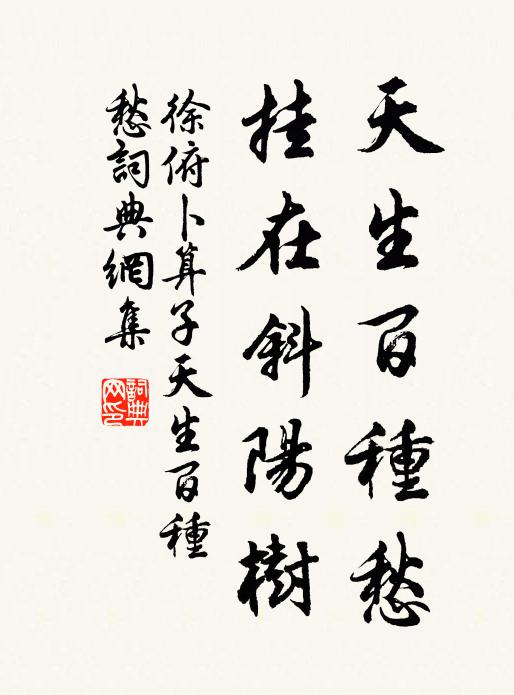 天生百種愁
挂在斜陽樹
徐俯卜算子天生百種
愁詞典網集
詞典
网印